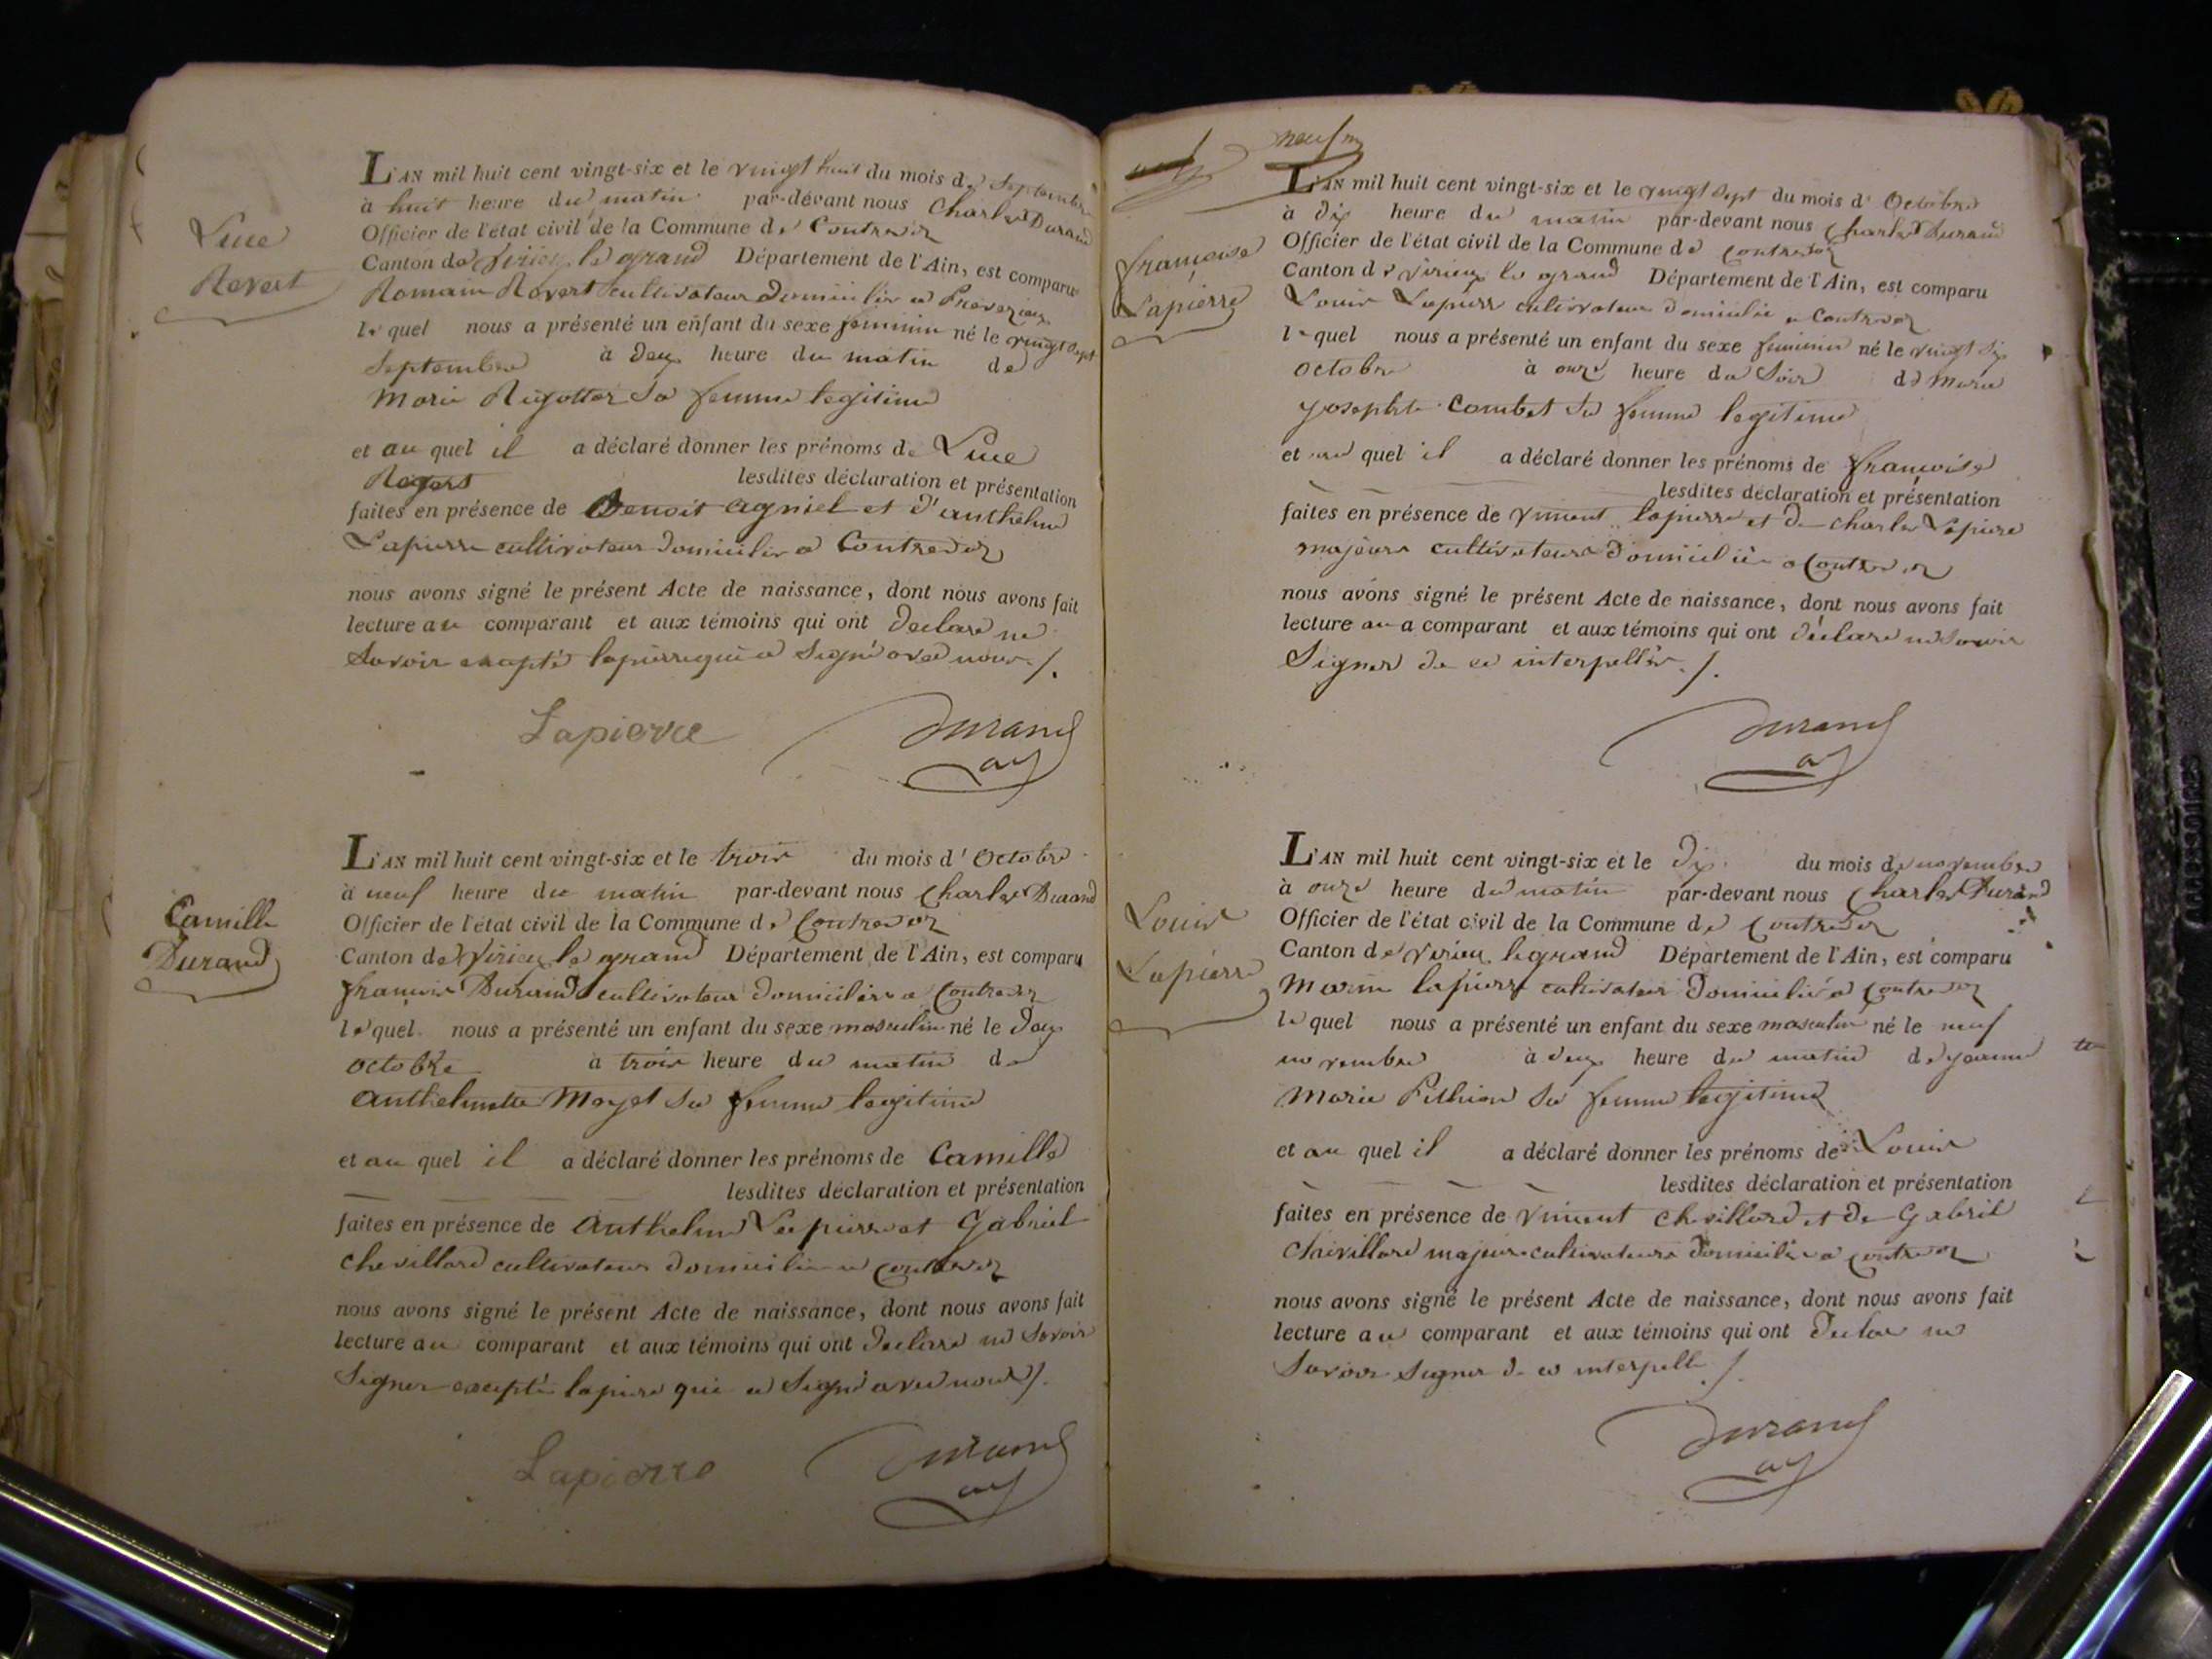 Luce
Rovert
L'AN mil huit cent vingt-six et le vingt huit du mois de Septembre
à huit heure du matin par-devant nous Charles Durand
Officier de l'état civil de la Commune de Contrevoz
Canton de Virieu le grand Département de l'Ain, est comparu
Romain Rovert cultivateur domicilié a
le quel nous a présenté un enfant du sexe feminin né le vingt sept
Septembre à deux heure du matin de
Marie sa femme legitime
et au quel il a déclaré donner les prénoms de Luce
lesdites déclaration et présentation
faites en présence de Benoit agniel et d'anthelme
Lapierre cultivateur domicilié a Contrevoz
nous avons signé le présent Acte de naissance, dont nous avons fait
lecture au comparant et aux témoins qui ont declaré ne
Savoir excepté lapierre qui a Signé avec nous ./.
Lapierre Durand
ay
Camille
Durand
L'AN mil huit cent vingt-six et le trois du mois d'Octobre
à neuf heure du matin par-devant nous Charles Durand
Officier de l'état civil de la Commune de Contrevoz
Canton de Virieu le grand Département de l'Ain, est comparu
françois Durand cultivateur domicilié a Contrevoz
le quel nous a présenté un enfant du sexe masculin né le deux
octobre à trois heure du matin de
anthelmette Moyet sa femme legitime
et au quel il a déclaré donner les prénoms de Camille
lesdites déclaration et présentation
faites en présence de anthelme Lapierre et Gabriel
chevillard cultivateur domicilié a Contrevoz
nous avons signé le présent Acte de naissance, dont nous avons fait
lecture au comparant et aux témoins qui ont declaré ne Savoir
Signer excepté lapierre qui a Signé avec nous ./.
Lapierre Durand
ay
neuf
françoise
Lapierre
L'AN mil huit cent vingt-six et le vingt sept du mois d'Octobre
à dix heure du matin par-devant nous Charles Durand
Officier de l'état civil de la Commune de Contrevoz
Canton de Virieu le grand Département de l'Ain, est comparu
Louis Lapierre cultivateur domicilié a Contrevoz
le quel nous a présenté un enfant du sexe feminin né le vingt six
octobre à onze heure du Soir de Marie
josephte Combet sa femme legitime
et au quel il a déclaré donner les prénoms de françoise
lesdites déclaration et présentation
faites en présence de vincent lapierre et de charles Lapierre
majeurs cultivateurs domiciliés a Contrevoz
nous avons signé le présent Acte de naissance, dont nous avons fait
lecture au a comparant et aux témoins qui ont déclaré ne Savoir
Signer de ce interpellés ./.
Durand
ay
Louis
Lapierre
L'AN mil huit cent vingt-six et le dix du mois de novembre
à onze heure du matin par-devant nous Charles Durand
Officier de l'état civil de la Commune de Contrevoz
Canton de Virieu le grand Département de l'Ain, est comparu
lapierre cultivateur domicilié a Contrevoz
le quel nous a présenté un enfant du sexe masculin né le neuf
novembre à deux heure du matin de jeanne
Marie Pithion sa femme legitime
et au quel il a déclaré donner les prénoms de Louis
lesdites déclaration et présentation
faites en présence de vincent chevillard et de Gabriel
Chevillard majeurs cultivateurs domiciliés a Contrevoz
nous avons signé le présent Acte de naissance, dont nous avons fait
lecture au comparant et aux témoins qui ont declaré ne
Savoir Signer de ce interpellé ./.
Durand
ay
ACCESSOIRES